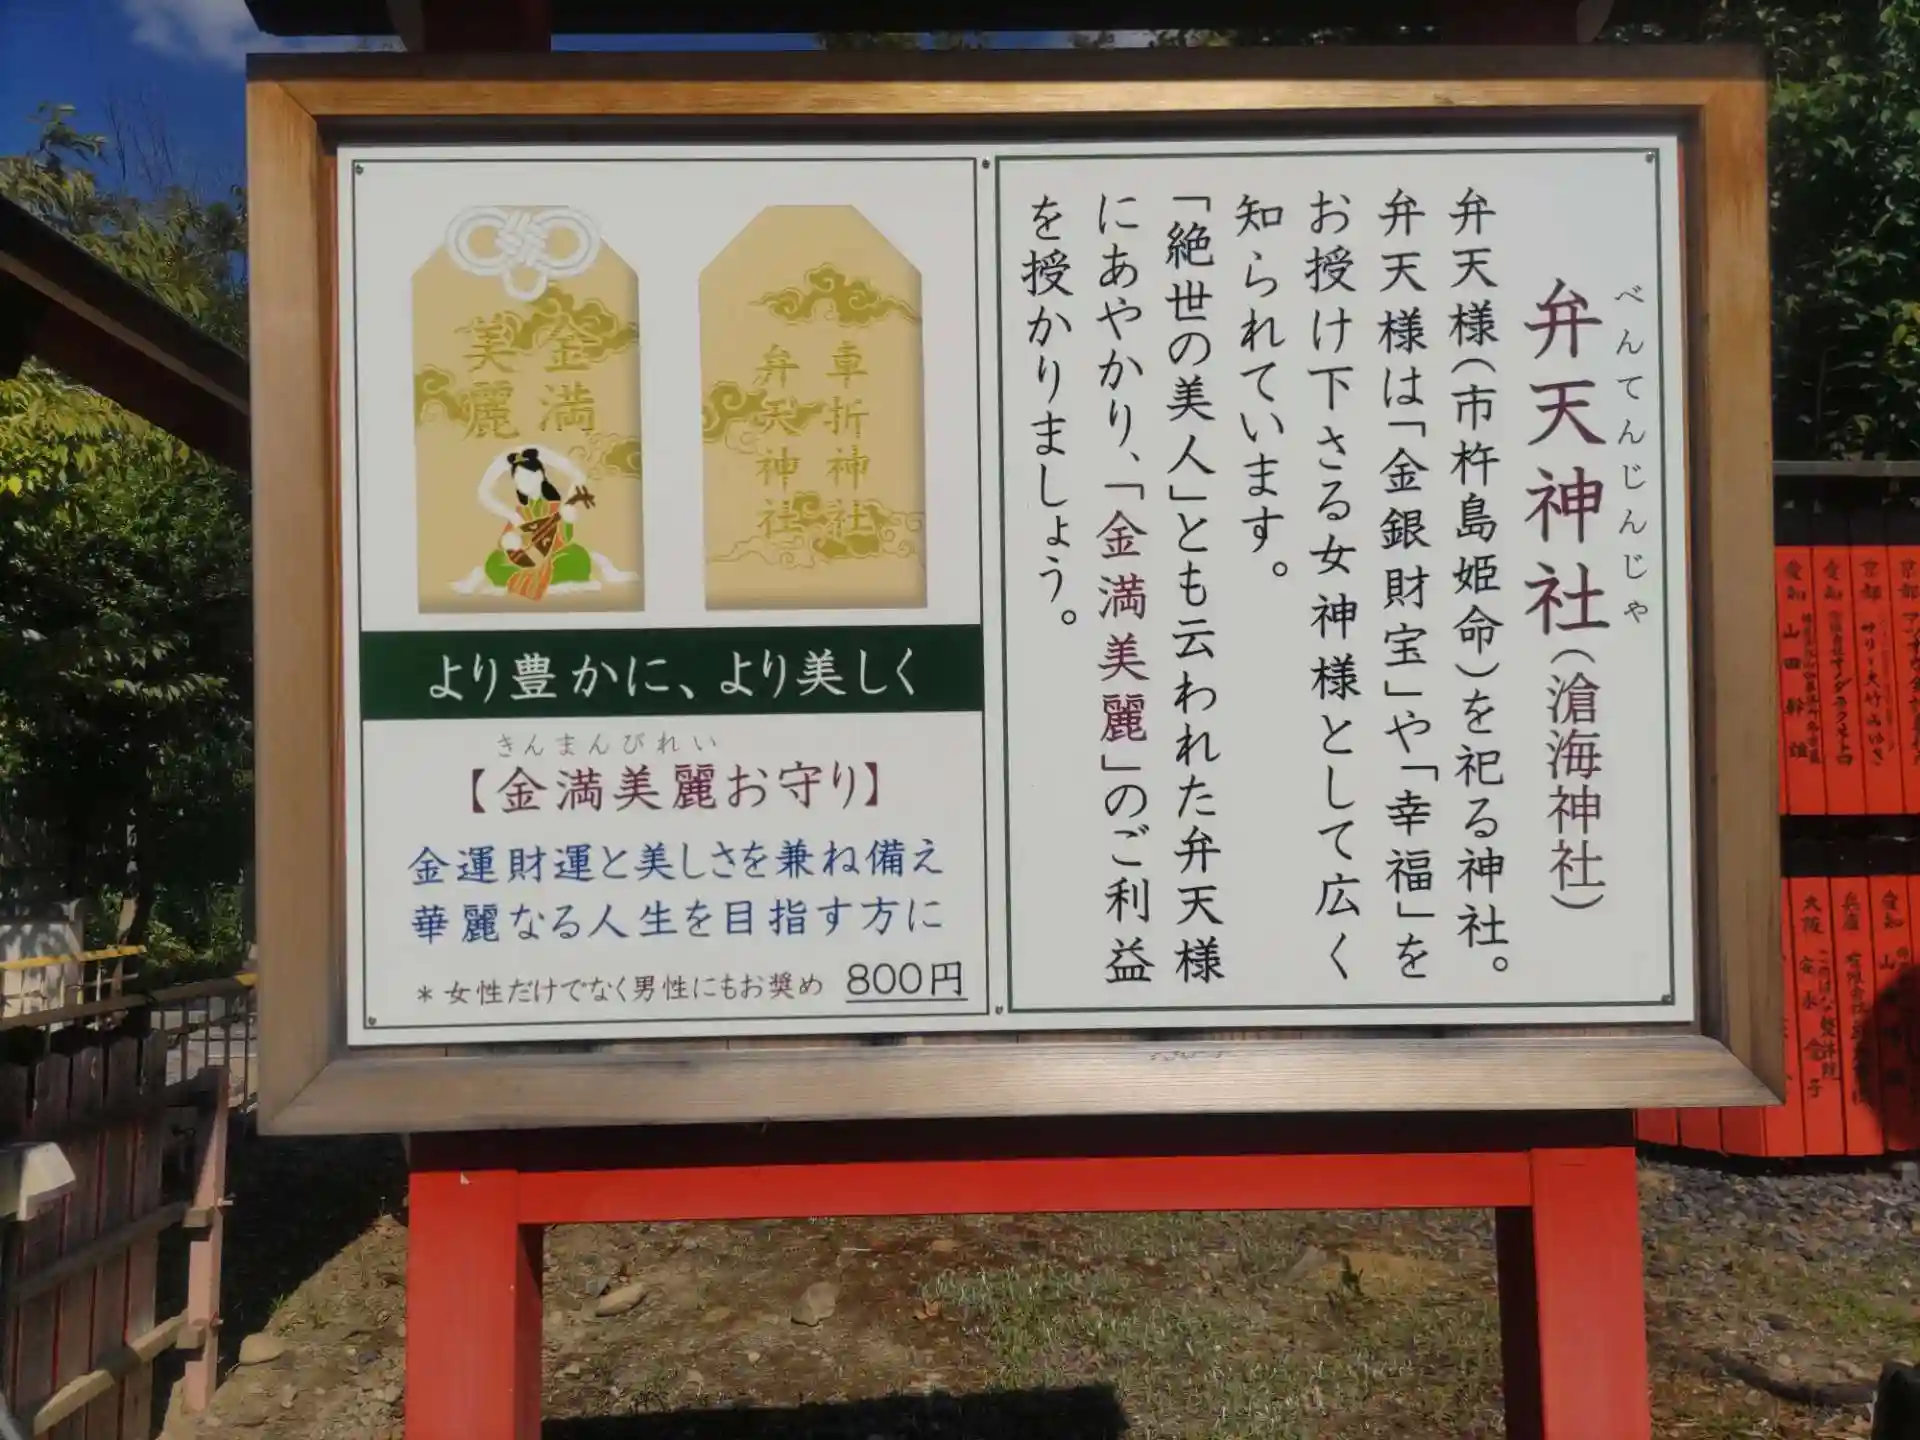 べんてんじんじゃ
弁天神社(滄海神社)
弁天様(市杵島姫命)を祀る神社。
弁天様は「金銀財宝」や「幸福」を
お授け下さる女神様として広く
知られています。
「絶世の美人」とも云われた弁天様
にあやかり、「金満美麗」のご利益
を授かりましょう。
金満
美麗
車折神社
弁天神社
より豊かに、より美しく
きんまんびれい
【金満美麗お守り】
金運財運と美しさを兼ね備え
華麗なる人生を目指す方に
*女性だけでなく男性にもお奨め 800円
京都
京都 サリー大竹 みゆき
愛知
愛知 山田幹雄
愛知
兵庫
大阪 安永金子